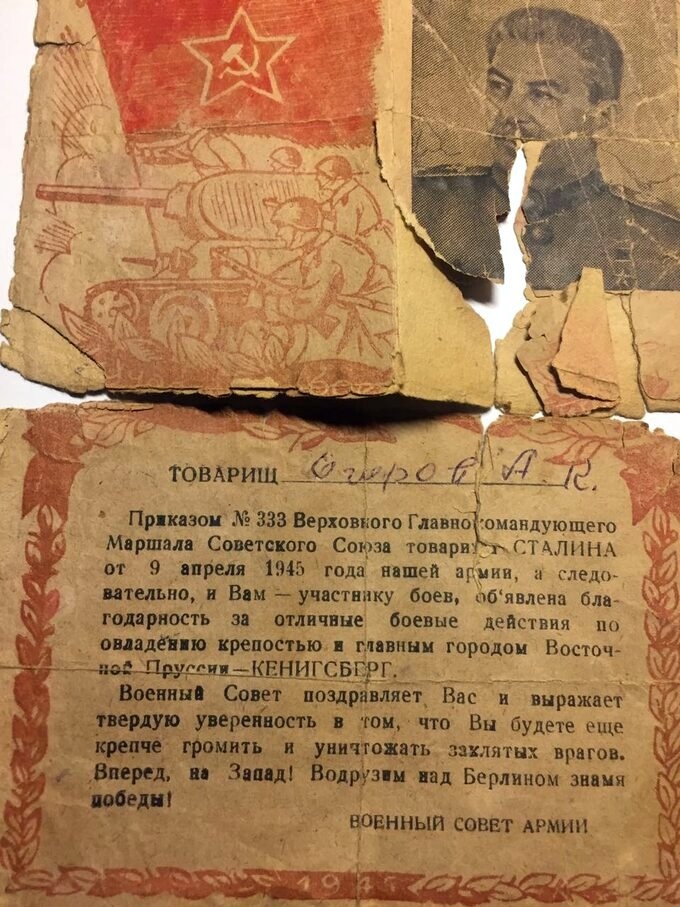 ТОВАРИЩ Огеров А. К.
Приказом № 333 Верховного Главнокомандующего
Маршала Советского Союза товарища СТАЛИНА
от 9 апреля 1945 года нашей армии, а следо-
вательно, и Вам — участнику боев, об'явлена бла-
годарность за отличные боевые действия по
овладению крепостью и главным городом Восточ-
ной Пруссии—КЕНИГСБЕРГ.
Военный Совет поздравляет Вас и выражает
твердую уверенность в том, что Вы будете еще
крепче громить и уничтожать заклятых врагов.
Вперед, на Запад! Водрузим над Берлином знамя
победы!
ВОЕННЫЙ СОВЕТ АРМИИ